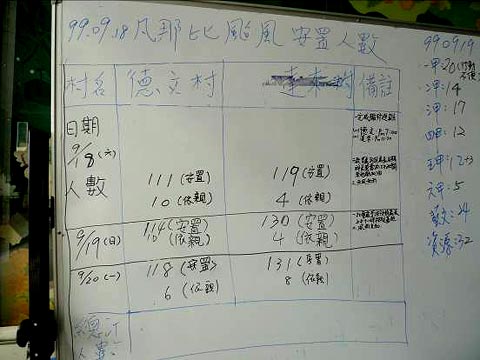 99.09.18凡那比颱風安置人數
村名 德文村 達來村 備註
日期
9/18(六)
人數
111(安置) 119(安置)
10(依親) 4(依親)
9/19(日) 114(安置) 130(安置)
10(依親) 4(依親)
9/20(一) 118(安置) 131(安置)
6(依親) 8(依親)
總計
人數
99.09.19
一甲:20
二甲:14
三甲:17
四甲:12
五甲:12
六甲:5
資源:32